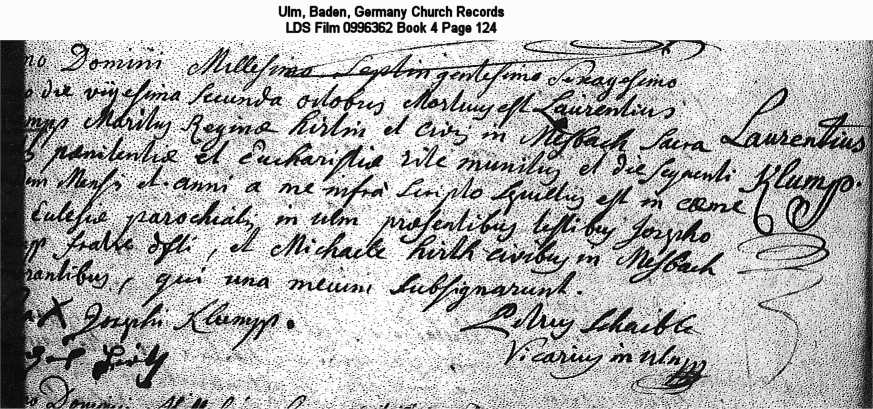 Ulm, Baden, Germany Church Records
LDS Film 0996362 Book 4 Page 124
no Domini Millesimo Septingentesimo Sexagesimo
o die vigesima secunda octobris Mortuus est Laurentius
umpp Maritus Reginæ hirtin et civis in Mesbach Sacra
Laurentius
Klumpp.
s pœnitentiæ et Eucharistiæ rite munitus et die sequenti
em Mensis et anni a me infra scripto sepultus est in cœme
Eclesiæ parochialis in ulm præsentibus testibus Josepho
pp fratre dfti, et Michaele hirth civibus in Mesbach
rantibus, qui una mecum subsignarunt.
X Josephi Klumpp.
Petrus Schaible
Vicarius in ulm
o Domini